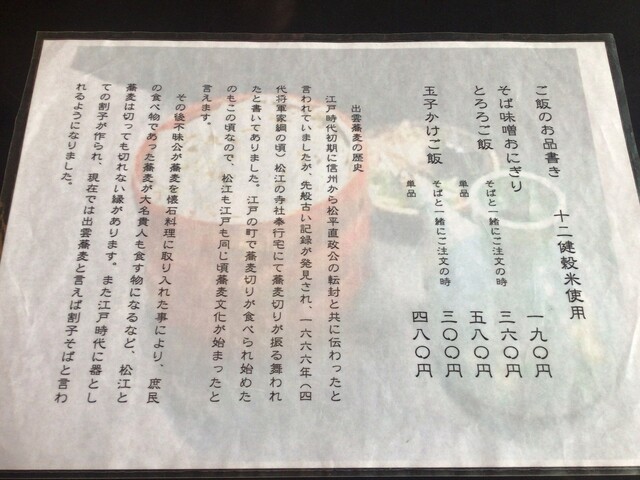 ご飯のお品書き 十二健穀米使用
そば味噌おにぎり 一九〇円
とろろご飯 そばと一緒にご注文の時 三六〇円
単品 五八〇円
玉子かけご飯 そばと一緒にご注文の時 三〇〇円
単品 四八〇円
出雲蕎麦の歴史
江戸時代初期に信州から松平直政公の転封と共に伝わったと
言われていましたが、先般古い記録が発見され、一六六六年（四
代将軍家綱の頃）松江の寺社奉行宅にて蕎麦切りが振る舞われ
たと書いてありました。江戸の町で蕎麦切りが食べられ始めた
のもこの頃なので、松江も江戸も同じ頃蕎麦文化が始まったと
言えます。
その後不昧公が蕎麦を懐石料理に取り入れた事により、庶民
の食べ物であった蕎麦が大名貴人も食す物になるなど、松江と
蕎麦は切っても切れない縁があります。また江戸時代に器とし
ての割子が作られ、現在では出雲蕎麦と言えば割子そばと言わ
れるようになりました。